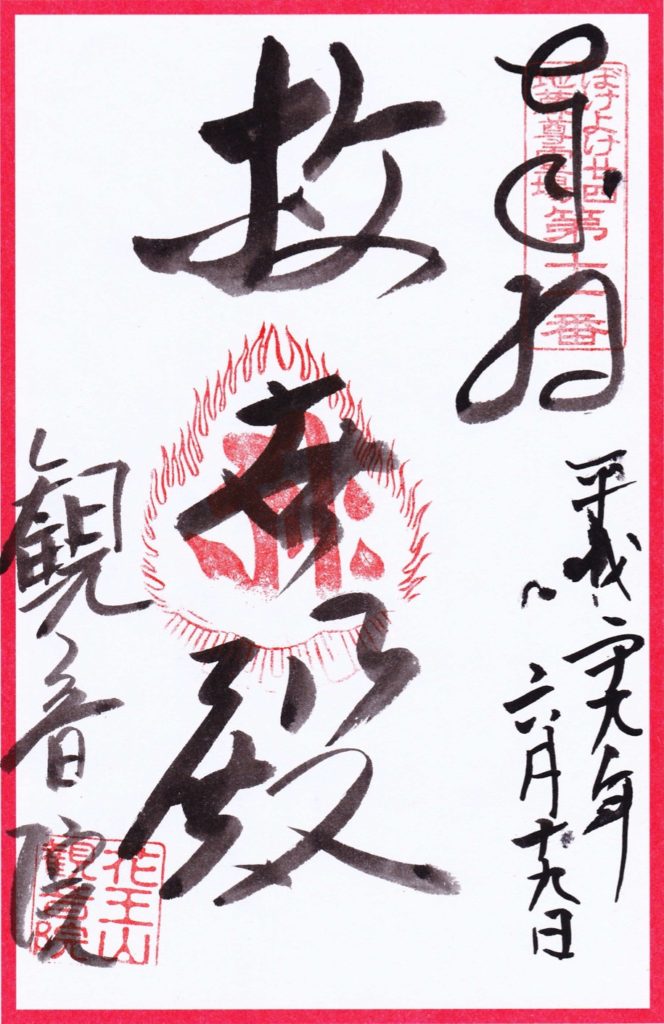 奉拝
ぼけよけ廿四
地蔵尊霊場
平成二十九年
六月十九日
救世殿
観音院
花王山
観音院